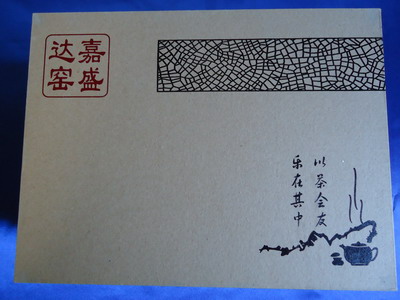 嘉盛
达窑
以茶会友
乐在其中